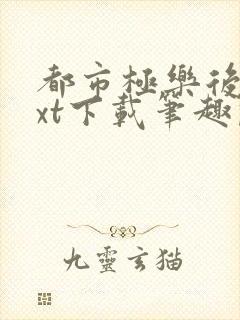 都市極樂後
xt下載筆趣
九靈玄猫